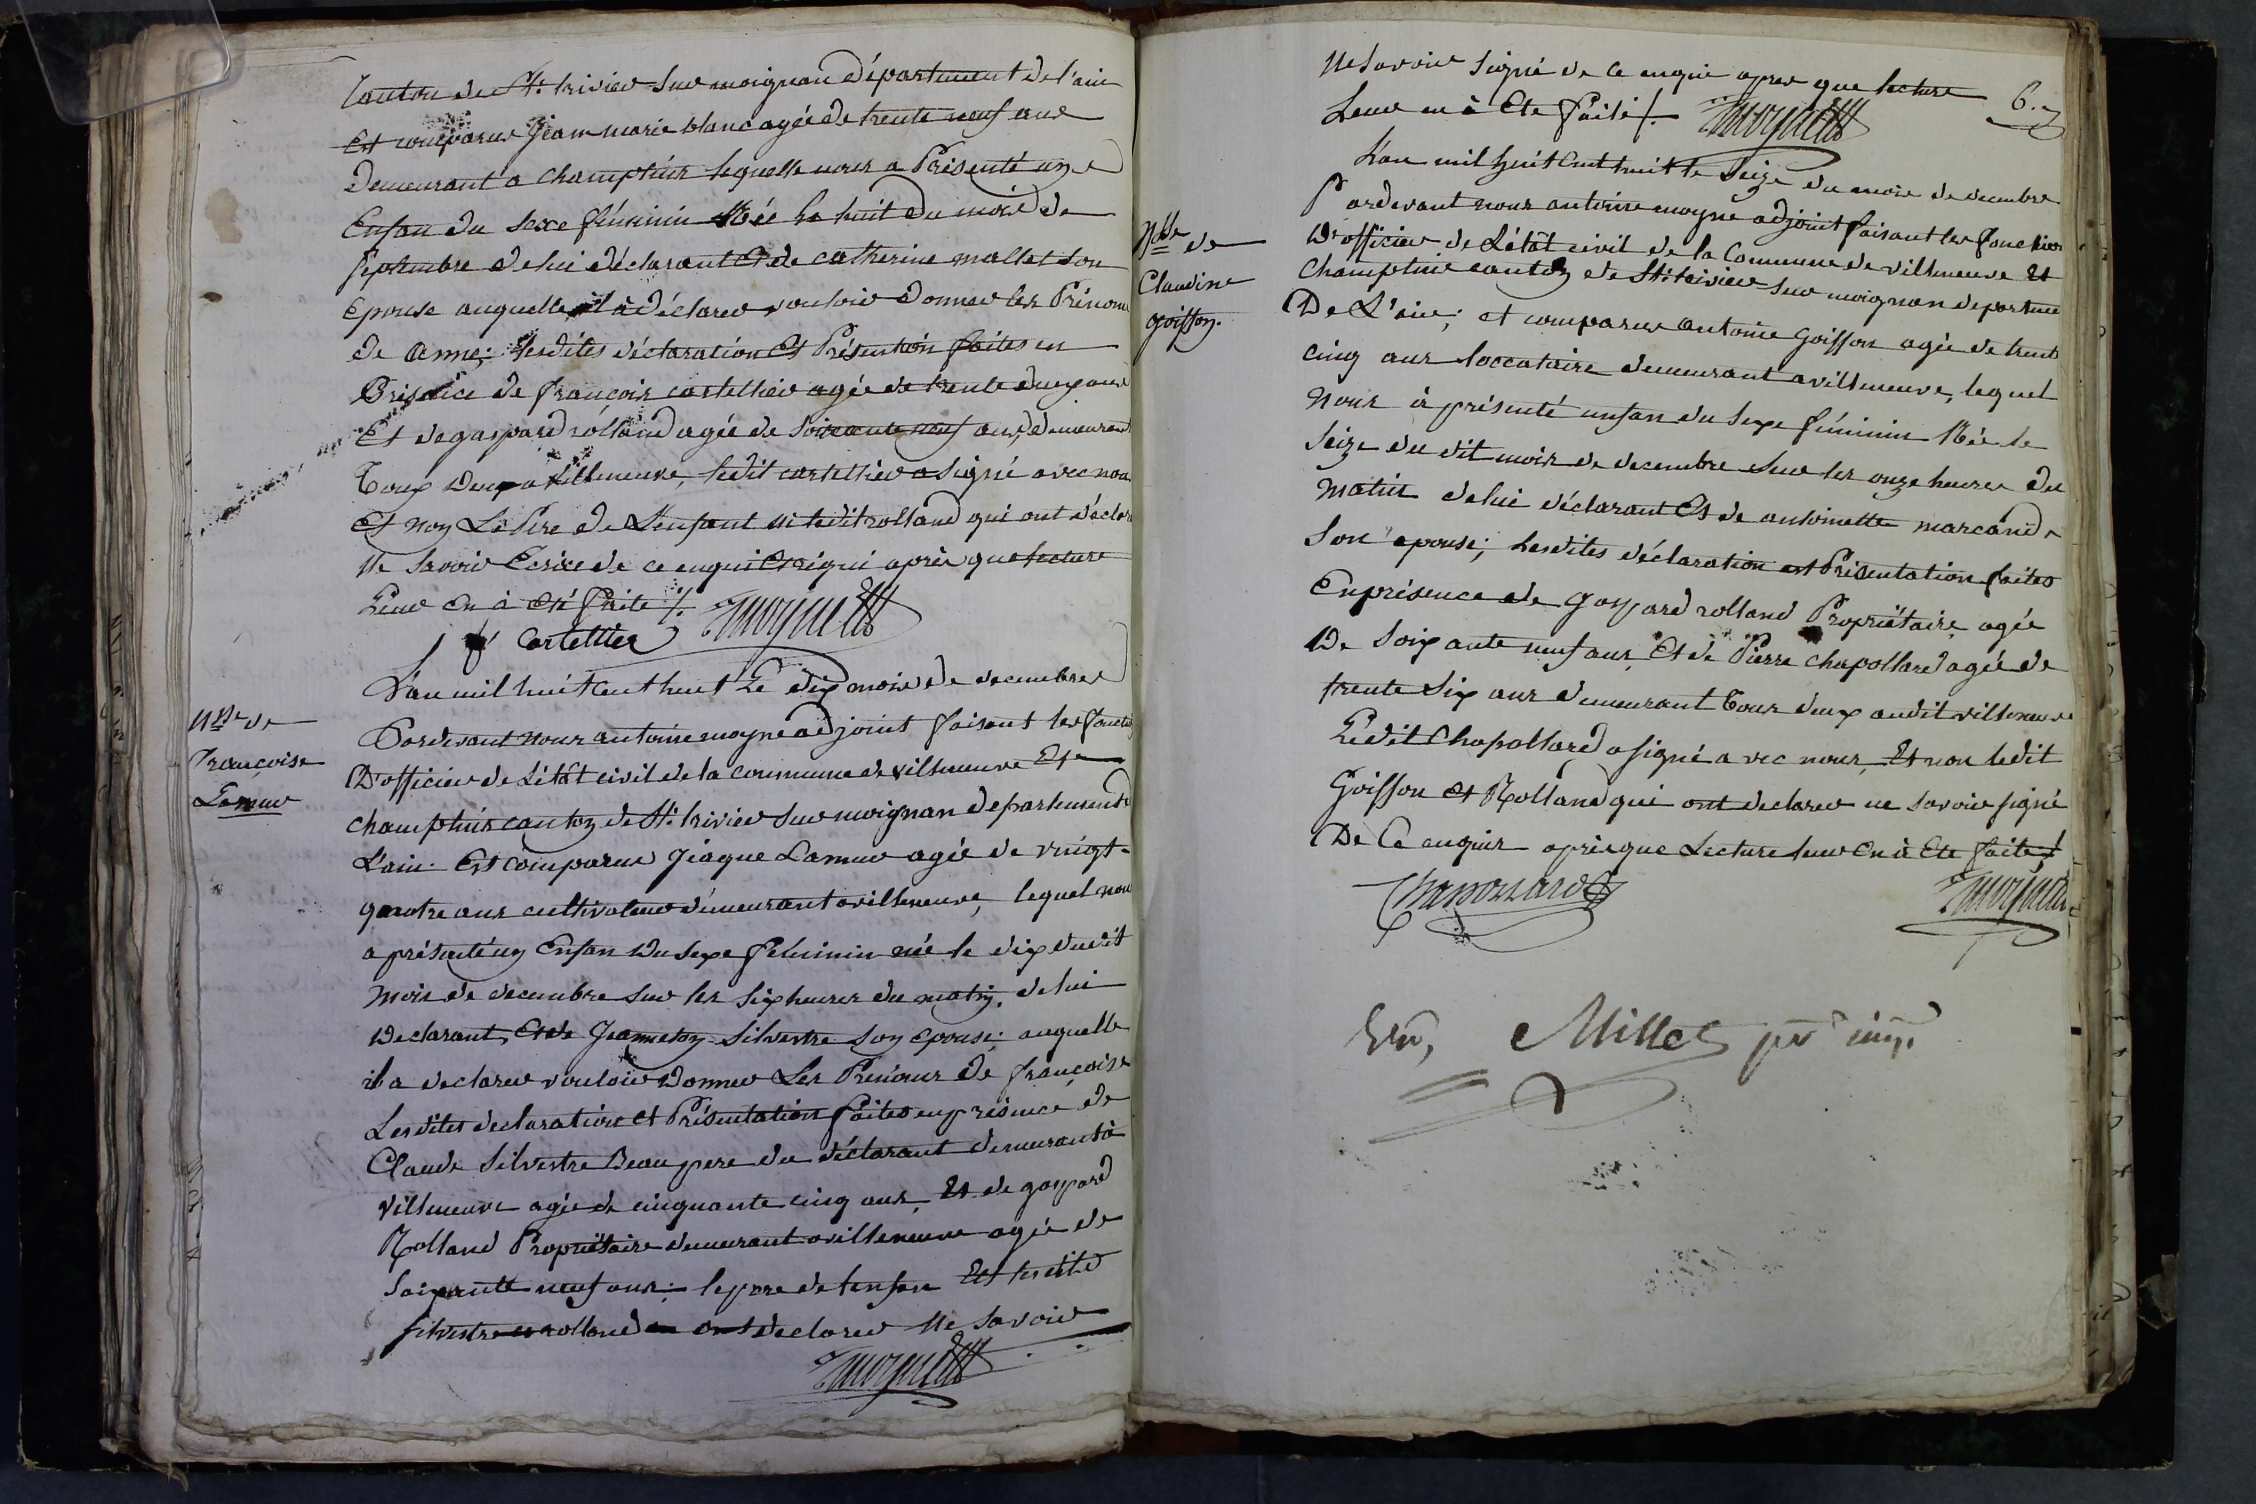 Canton de St. trivier Sur moignan Département de l'ain
Est comparue Jean marie blanc agée de trente neuf ans
Demeurant a Champtein lequelle nous a Présenté un
Enfan du sexe féminin Née le huit du mois de
Septembre de lui déclarant Et de catherine mallet son
Epouse auquelle il à déclarer vouloir donner les Prénom
de anne; Lesdites déclaration Et Présention faites en
Présence de françois cartellier agée de trente deux ans
Et de gaspard rolland agée de soixante neuf ans, demeurant
Toux Deux a villeneuve, ledit cartellier a signé avec nou
Et non Le Pere de L'enfant ni ledit rolland qui ont déclar
Ne Savoir Ecrire de ce enqui après que lecture
Leur en à été faite /.
cartellier
L'an mil huit cent huit Le dix mois de decembre
Nce de
françoise
Lameur
Pardevant nous antoine moyne adjoint faisant les fonct
D'officier de L'état civil de la commune de villeneuve Et
champtein canton de St. trivier Sur moignan departement de
L'ain. Est comparue Jiaque Lameur agée de vingt-
quatre ans cultivateur demeurant avilleneuve, lequel nou
a présenté un Enfan Du sexe féminin née le dix dudit
Mois de decembre sur les six heures du matin, de lui
Declarant, Et de Jeanneton Silvestre son epouse; auquelle
il a declarer vouloir Donner Les Prenoms de françoise
Lesdites declaration et Présentation faites en présence de
Claude Silvestre Beau pere du déclarant demeurant à
villeneuve agée de cinquante cinq ans, Et de gaspard
Rolland Propriétaire demeurant avilleneuve agée de
soixante neuf ans; le pere de lenfan Et lesdits
silvestre et rolland ont declarer Ne Savoir
Ne Savoir signé de ce enquis apres que lecture
Leur en à Ete faite /.
6.
L'an mil huit cent huit le seize du mois de decembre
Nce de
Claudine
goiffon.
Pardevant nous antoine moyne adjoint faisant les fonction
D'officier de L'état civil de la Commune de villeneuve Et
Champtein canton de St. trivier Sur moignan departeme
De L'ain; et comparue antoine Goiffon agée de trent
cinq ans loccataire demeurant avilleneuve, lequel
Nous à présenté enfan du sexe féminin Née le
seize du dit mois de decembre Sur les onze heures du
matin de lui déclarant Et de antoinette marcand
Son epouse; Lesdites déclaration et Présentation faites
En présence de gaspard rolland Propriétaire agée
De soix ante neuf ans, Et de Pierre Chapollard agée de
trente Six ans demeurant Tous deux audit villeneuve
Ledit Chapollard a signé avec nous, Et non ledit
Goiffon Et Rolland qui ont declarer ne savoir signé
De Ce enquis après que Lecture leur en à Ete faite /
Chapollard
Millet